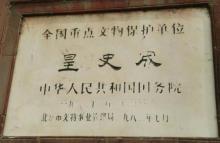 全国重点文物保护单位
皇史宬
中华人民共和国国务院
北京市文物事业管理局 一九八二年七月